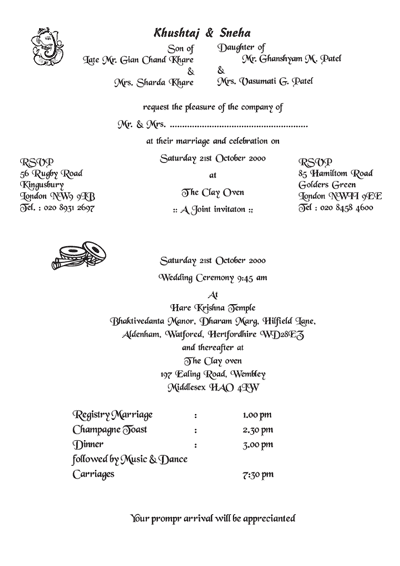 Khushtaj & Sneha
Son of
Late Mr. Gian Chand Khare
&
Mrs. Sharda Khare
Daughter of
Mr. Ghanshyam M. Patel
&
Mrs. Vasumati G. Patel
request the pleasure of the company of
Mr. & Mrs. ........................................................
at their marriage and celebration on
Saturday 21st October 2000
at
The Clay Oven
:: A Joint invitaton ::
RSVP
56 Rugby Road
Kingusbury
London NW9 9LB
Tel. : 020 8931 2697
RSVP
85 Hamiltom Road
Golders Green
London NW11 9EE
Tel : 020 8458 4600
Saturday 21st October 2000
Wedding Ceremony 9:45 am
At
Hare Krishna Temple
Bhaktivedanta Manor, Dharam Marg, Hilfield Lane,
Aldenham, Watfored, Hertfordhire WD28EZ
and thereafter at
The Clay oven
197 Ealing Road, Wembley
Middlesex HAO 4LW
Registry Marriage : 1.00 pm
Champagne Toast : 2.30 pm
Dinner : 3.00 pm
followed by Music & Dance
Carriages 7:30 pm
Your prompr arrival will be apprecianted